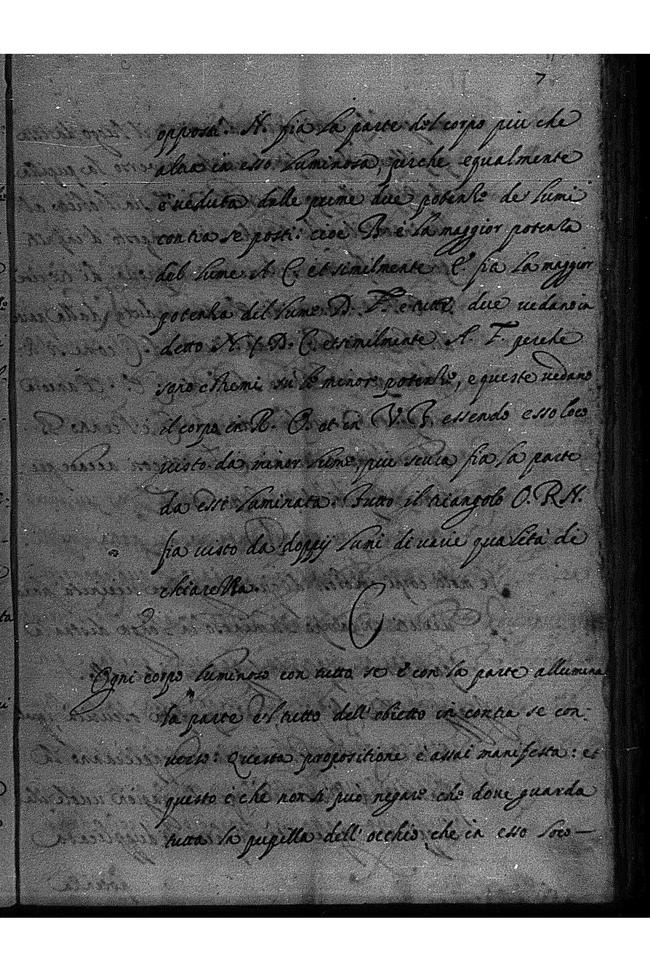 7
opposti. N. fia la parte del corpo piu che
altra in esso luminosa, perche equalmente
è veduta dalle prime due potentie de lumi
contra se posti: cioè B. è la maggior potenta
del lume A. C. et similmente E. fia la maggior
potentia del lume D. F. e tutti due vedano in
detto N. D. C. et similmente A. F. perche
sono estremi su le minor potentie, e queste vedano
il corpo in R. O. et in V. P. essendo esso loco
visto da minor lume, piu scura fia la parte
da essi luminata. Tutto il triangolo O. R. N.
fia visto da doppij lumi di varie qualità di
chiarezza.
C
Ogni corpo luminoso con tutto se è con la parte allumina
la parte e'l tutto dell' obietto in contra se con-
verso: Questa propositione è assai manifesta: et
questo è che non si può negare che dove guarda
tutta la pupilla dell' occhio, che in esso loco